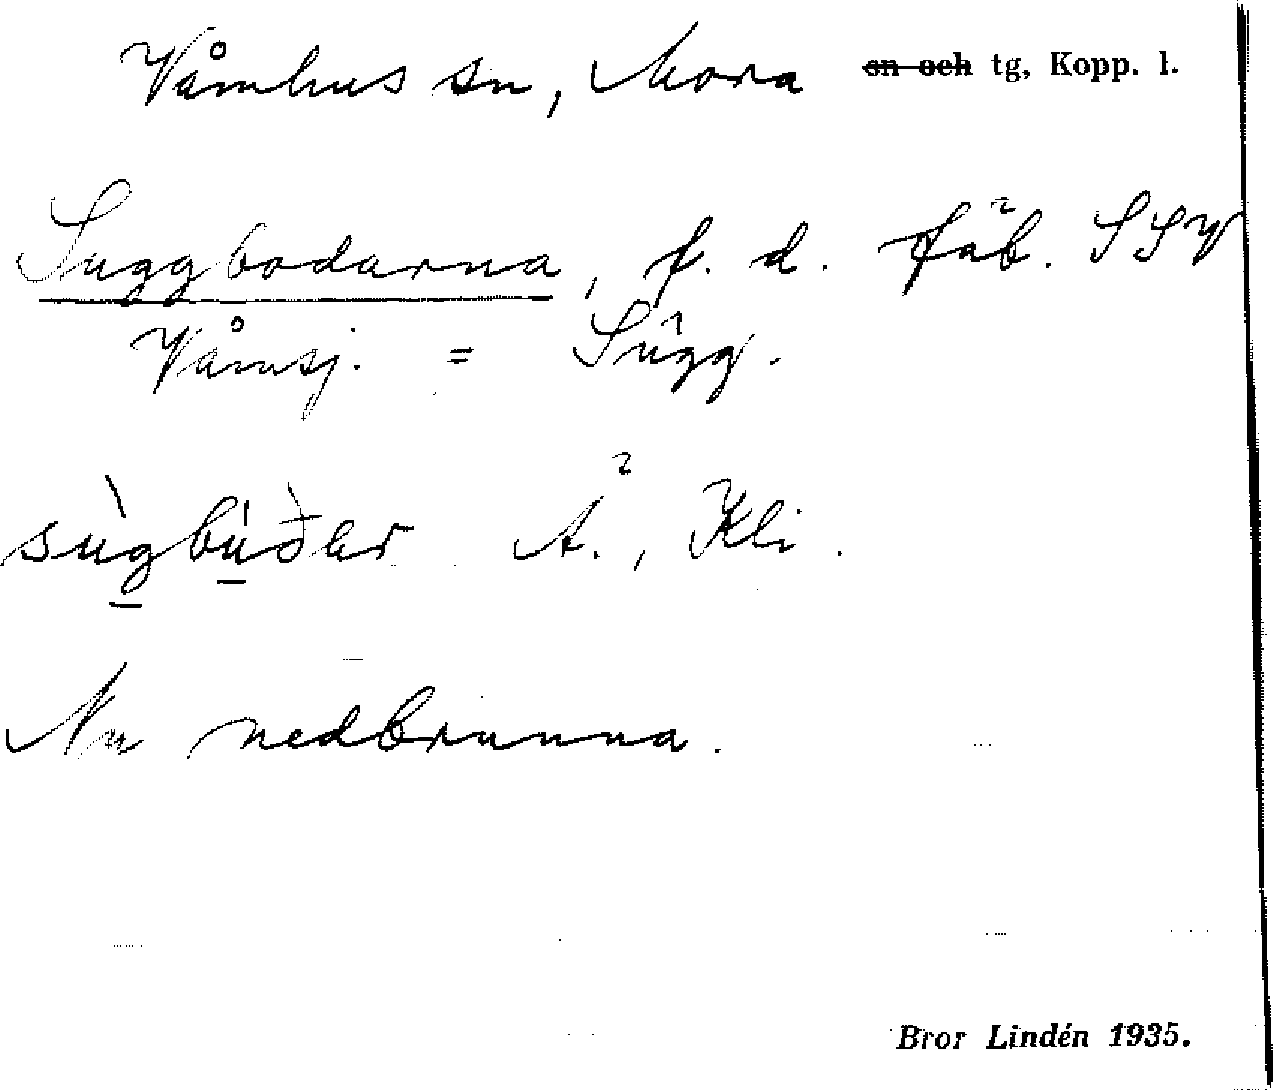 Våmhus sn, Mora sn och tg, Kopp. l.
Suggbodarna, f. d. fäb. SSV
Våmsj. = Sugg.
sùgbùðær Å., Kli.
Nu nedbrunna.
Bror Lindén 1935.